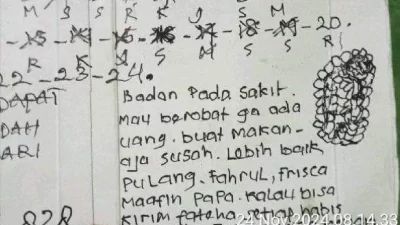 M S S R K J S M
- 13 - 14 - 15 - 16 - 17 - 18 - 19 - 20.
R K J S M S S R
22 - 23 - 24.
DAPAT
DAH
ARI
Badan Pada sakit.
mau berobat ga ada
uang. buat makan -
aja susah. Lebih baik
Pulang. Fahrul, Frisca
Maafin PaPa. Kalau bisa
Kirim fateha. setiap habis
24 Nov 2024 08.14.33